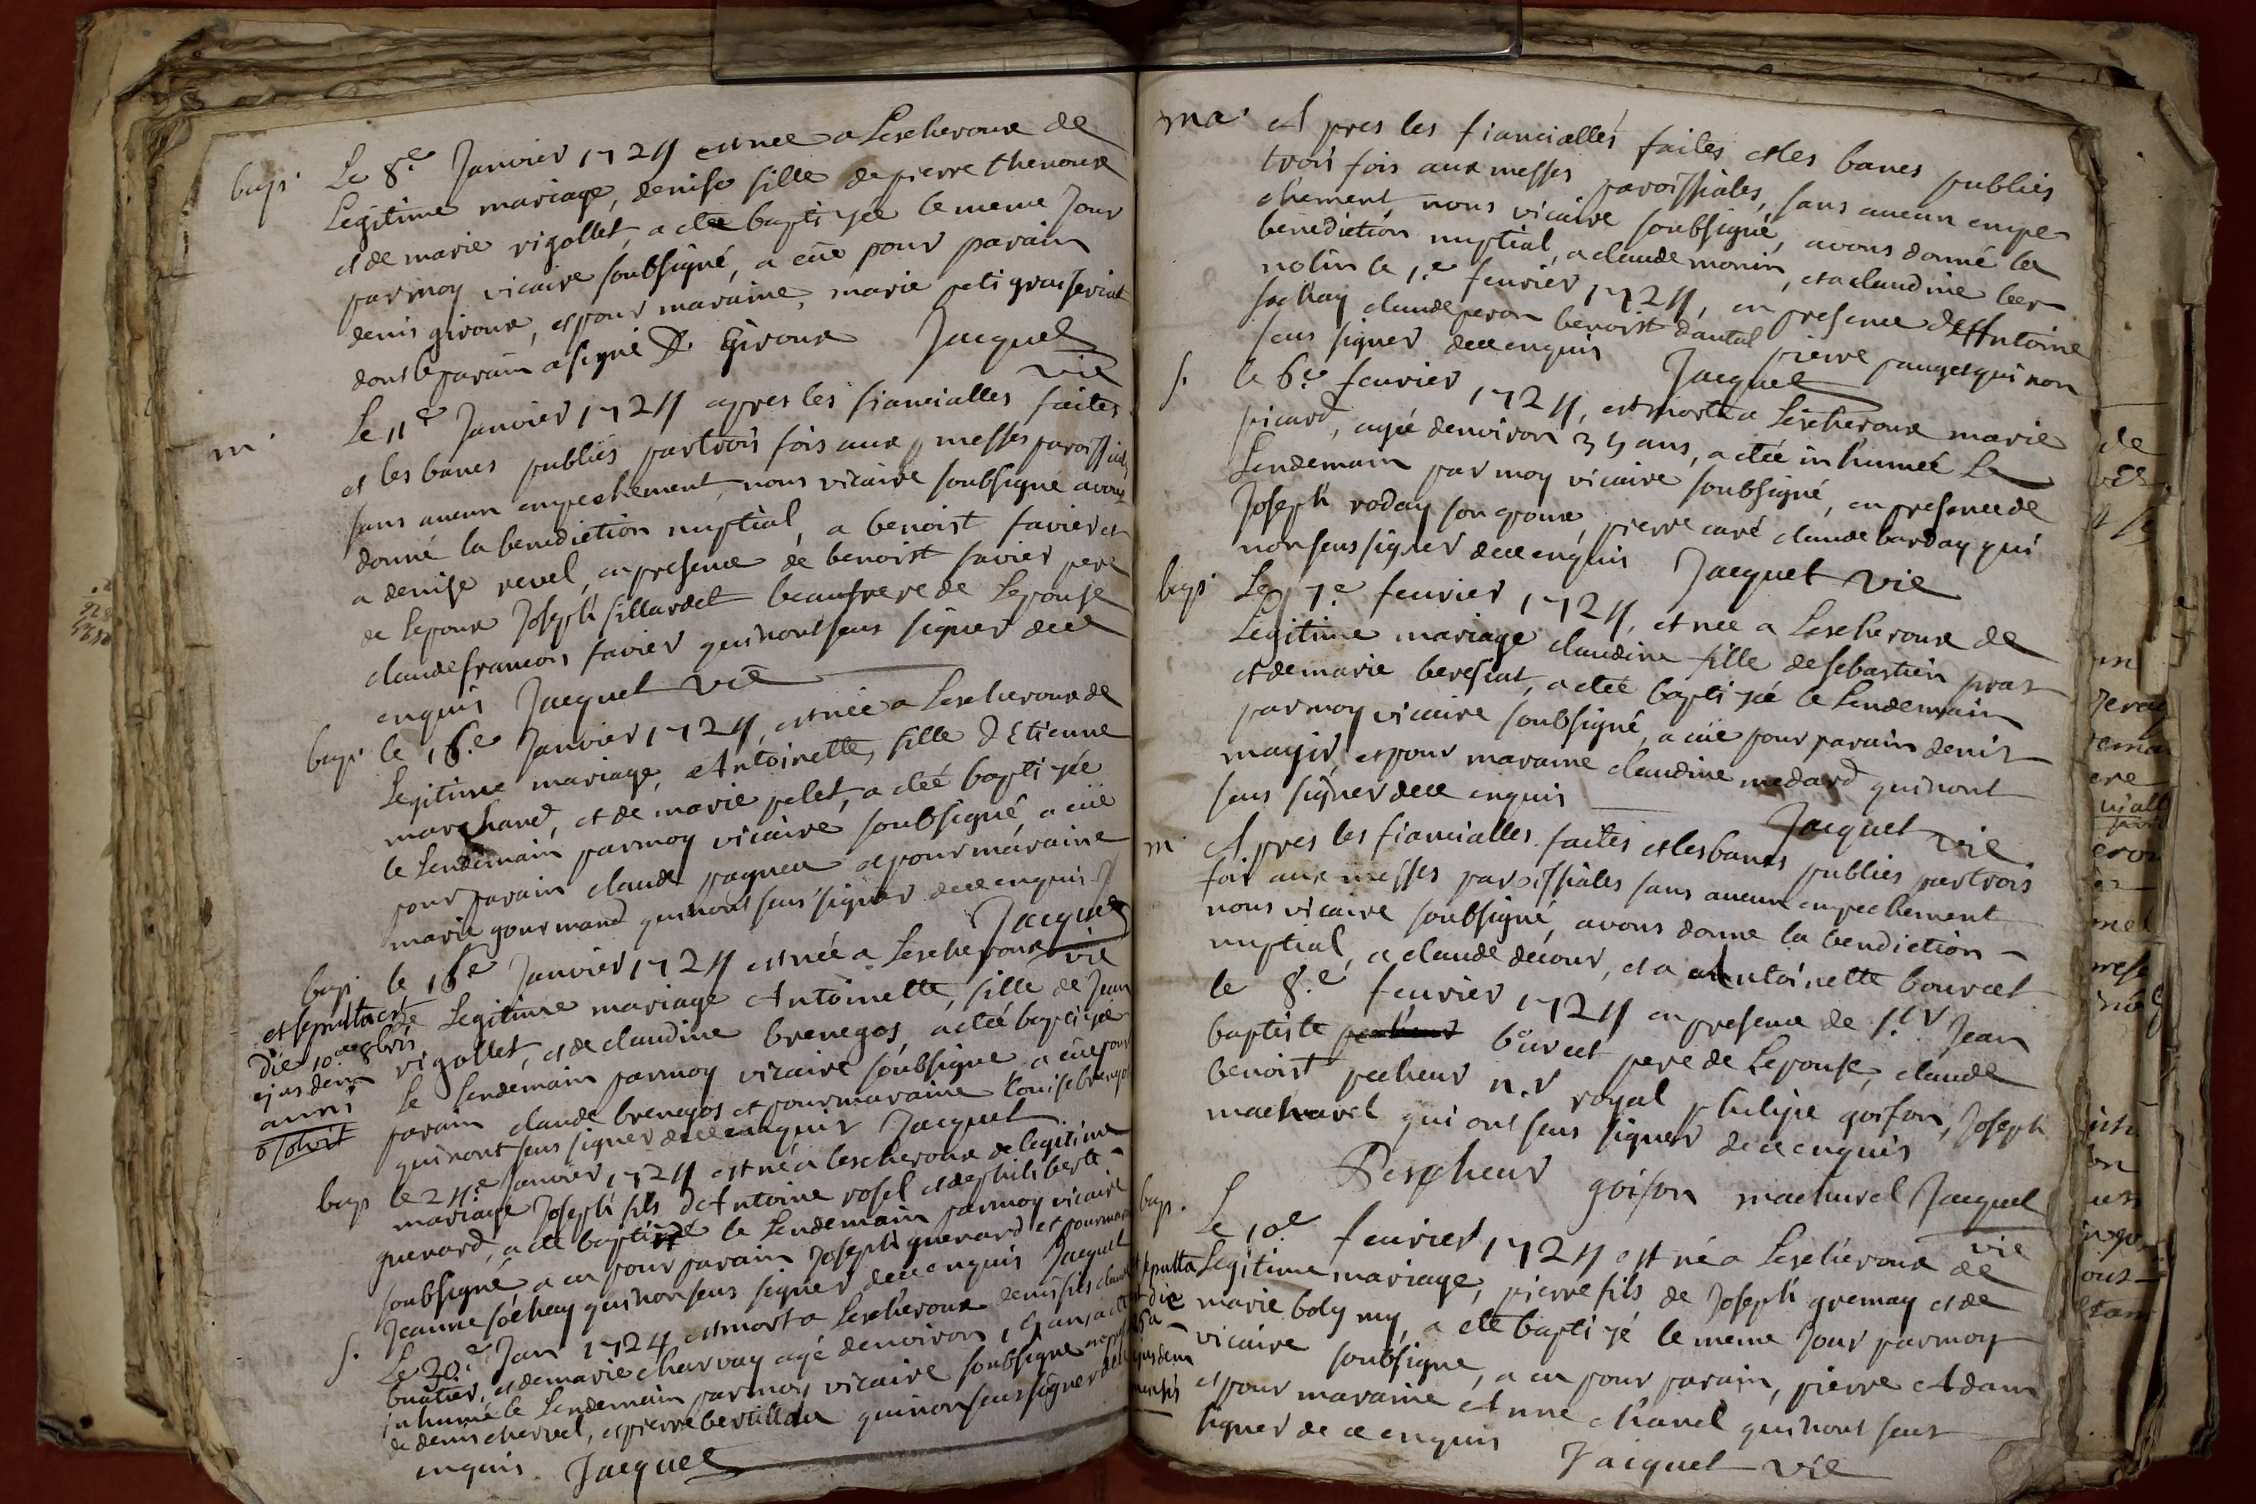 bap. Le 8e Janvier 1724 est nee a Lescheroux de
Legitime mariage, denise fille de pierre thenoux
et de marie rigollet, a eté baptizée le meme Jour
par moy vicaire soubsigné, a eüe pour parain
denis giroux, et pour maraine, marie
dont le parain a signé D. Giroux Jacquet
vic
m. Le 11e Janvier 1724 apres les fiancialles faites
et les bancs publiés par trois fois aux messes paroissial
sans aucun empechement, nous vicaire soubsigné avons
donné la benediction nuptial, a benoist favier et
a denise revel, en presence de benoist favier pere
de Lepoux Joseph fillardet beaufrere de Lepouse
claude francois favier qui nont seus signer de ce
enquis Jacquet vic
bap. le 16.e Janvier 1724, est née a Lescheroux de
Legitime mariage, Antoinette, fille d Etienne
marchand, et de marie pelet, a eté baptizée
le Lendemain par moy vicaire soubsigné a eüe
pour parain claude pagneu et pour maraine
marie gourmand qui nont seus signer de ce enquis
Jacquet
vic
bap. le 18e Janvier 1724 est née a Lescheroux
et sepulta est de Legitime mariage Antoinette, fille de Jean
die 10a 8bris rigollet, et de claudine brenegos, a eté baptizée
ejusdem Le Lendemain par moy vicaire soubsigné a eüe pour
anni parain claude brenegos et pour maraine Louise
obiit qui nont seus signer de ce enquis Jacquet
bap le 24e Janvier 1724 est né a lescheroux de legitime
mariage Joseph fils d Antoine rosel et de philiberte
guerard, a eté baptizé le Lendemain par moy vicaire
soubsigné, a eu pour parain Joseph guerard et pour mar
Jeanne sochay qui non seus signer de ce enquis Jacquet
s. Le 30.e Jan 1724 est mort a Lescheroux denis fils
buatier, et de marie charvay agé denviron
inhumé le Lendemain par moy vicaire soubsigné
de denis chervel, et pierre bertillou qui non seus signer de ce
enquis. Jacquet
ma. Apres les fiancialles faites et les bancs publiés
trois fois aux messes paroissiales, sans aucun empe-
chement, nous vicaire soubsigné, avons donné la
benediction nuptial, a claude monin, et a claudine
nolin le 1.e feuvrier 1724, en presence d Antoine
sochay claude peron benoist dautal pierre pauget qui non
seus signer de ce enquis Jacquet
s. le 6.e feuvrier 1724, est morte a Lescheroux marie
picard, agée denviron 35 ans, a eté inhumée Le
Lendemain par moy vicaire soubsigné, en presence de
Joseph roday son epoux, pierre caré claude barday qui
non seus signer de ce enquis Jacquet vic
bap. Le 7.e feuvrier 1724, et nee a Lescheroux de
Legitime mariage claudine fille de sebastien prat
et de marie beresiat, a eté baptizée le Lendemain
par moy vicaire soubsigné, a eüe pour parain denis
magir, et pour maraine claudine medard qui nont
seus signer de ce enquis
Jacquet vic.
m. Apres les fiancialles faites et les bancs publiés par trois
fois aux messes paroissiales sans aucun empechement
nous vicaire soubsigné, avons donne la bendiction
nuptial, a claude decour, et a Antoinette bourcet
le 8.e feuvrier 1724 en presence de s.r Jean
baptiste bourcet pere de Lepouse, claude
benoist pecheur n.r royal philipe goifon, Joseph
machurel qui ont seus signer de ce enquis
Pescheur goifon machurel Jacquet
vic
bap. Le 10.e feuvrier 1724 est né a Lescheroux de
sepulta Legitime mariage, pierre fils de Joseph gremay et de
die marie boly my, a eté baptizé le meme Jour par moy
ejusdem vicaire soubsigné, a eu pour parain, pierre Adam
mensis et pour maraine Anne chanel qui nont seus
signer de ce enquis Jacquet vic